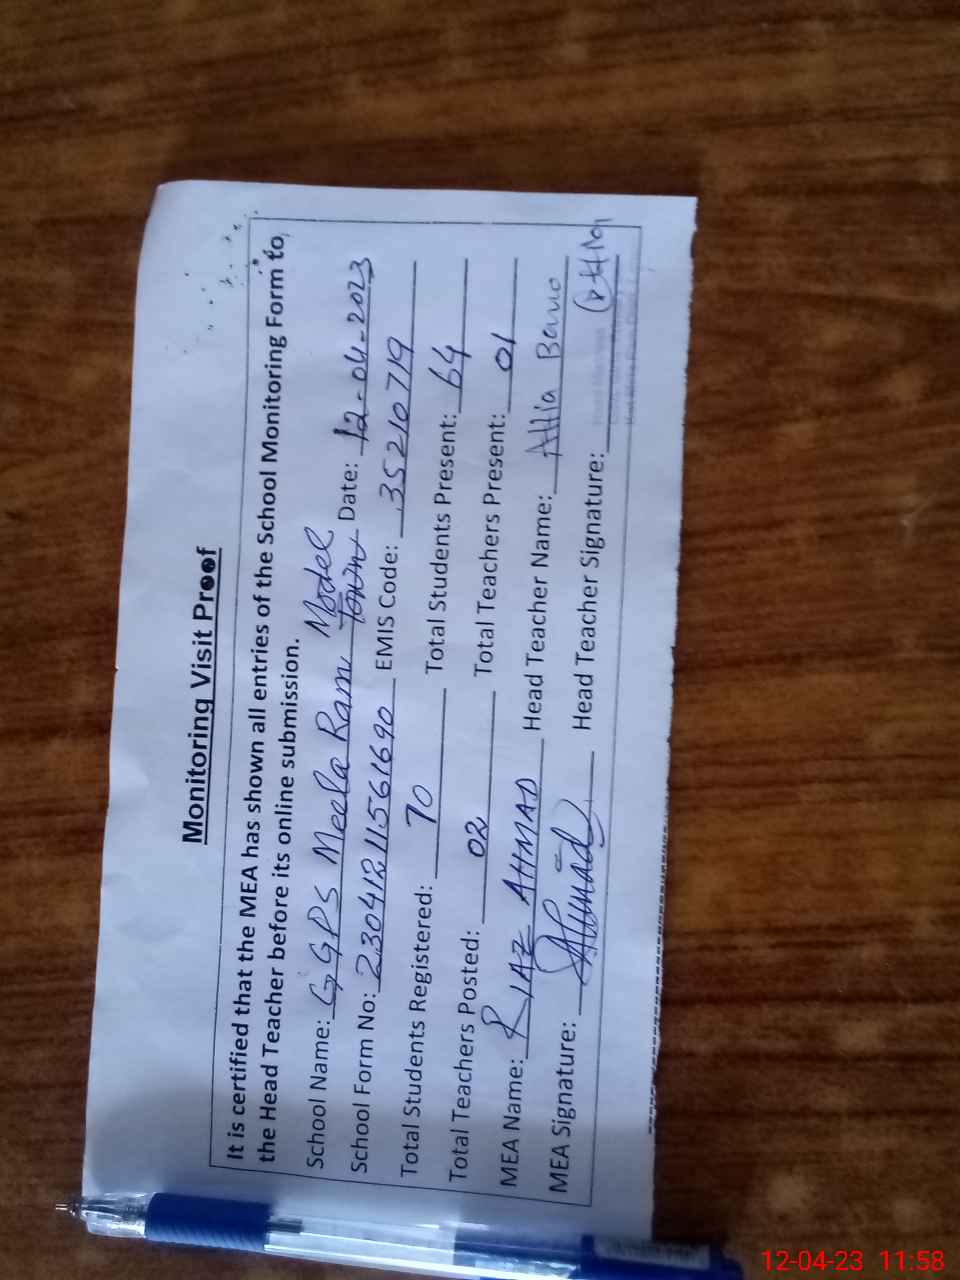 Monitoring Visit Proof
It is certified that the MEA has shown all entries of the School Monitoring Form to
the Head Teacher before its online submission.
School Name: GGPS Meela Ram Model Town Date: 12-04-2023
School Form No: 23041211561690 EMIS Code: 35210719
Total Students Registered: 70 Total Students Present: 64
Total Teachers Posted: 02 Total Teachers Present: 01
MEA Name: RIAZ AHMAD Head Teacher Name: Attia Bano
MEA Signature: Ahmad Head Teacher Signature:
12-04-23 11:58